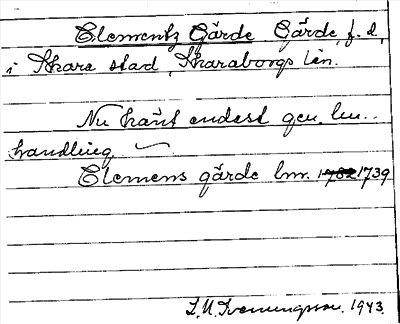 Clementz Gärde Gärde, f. d.
i Skara stad, Skaraborgs län.
Nu känt endast gen. lm..
handling
Clemens gärde lm. 1782 1739
1943.